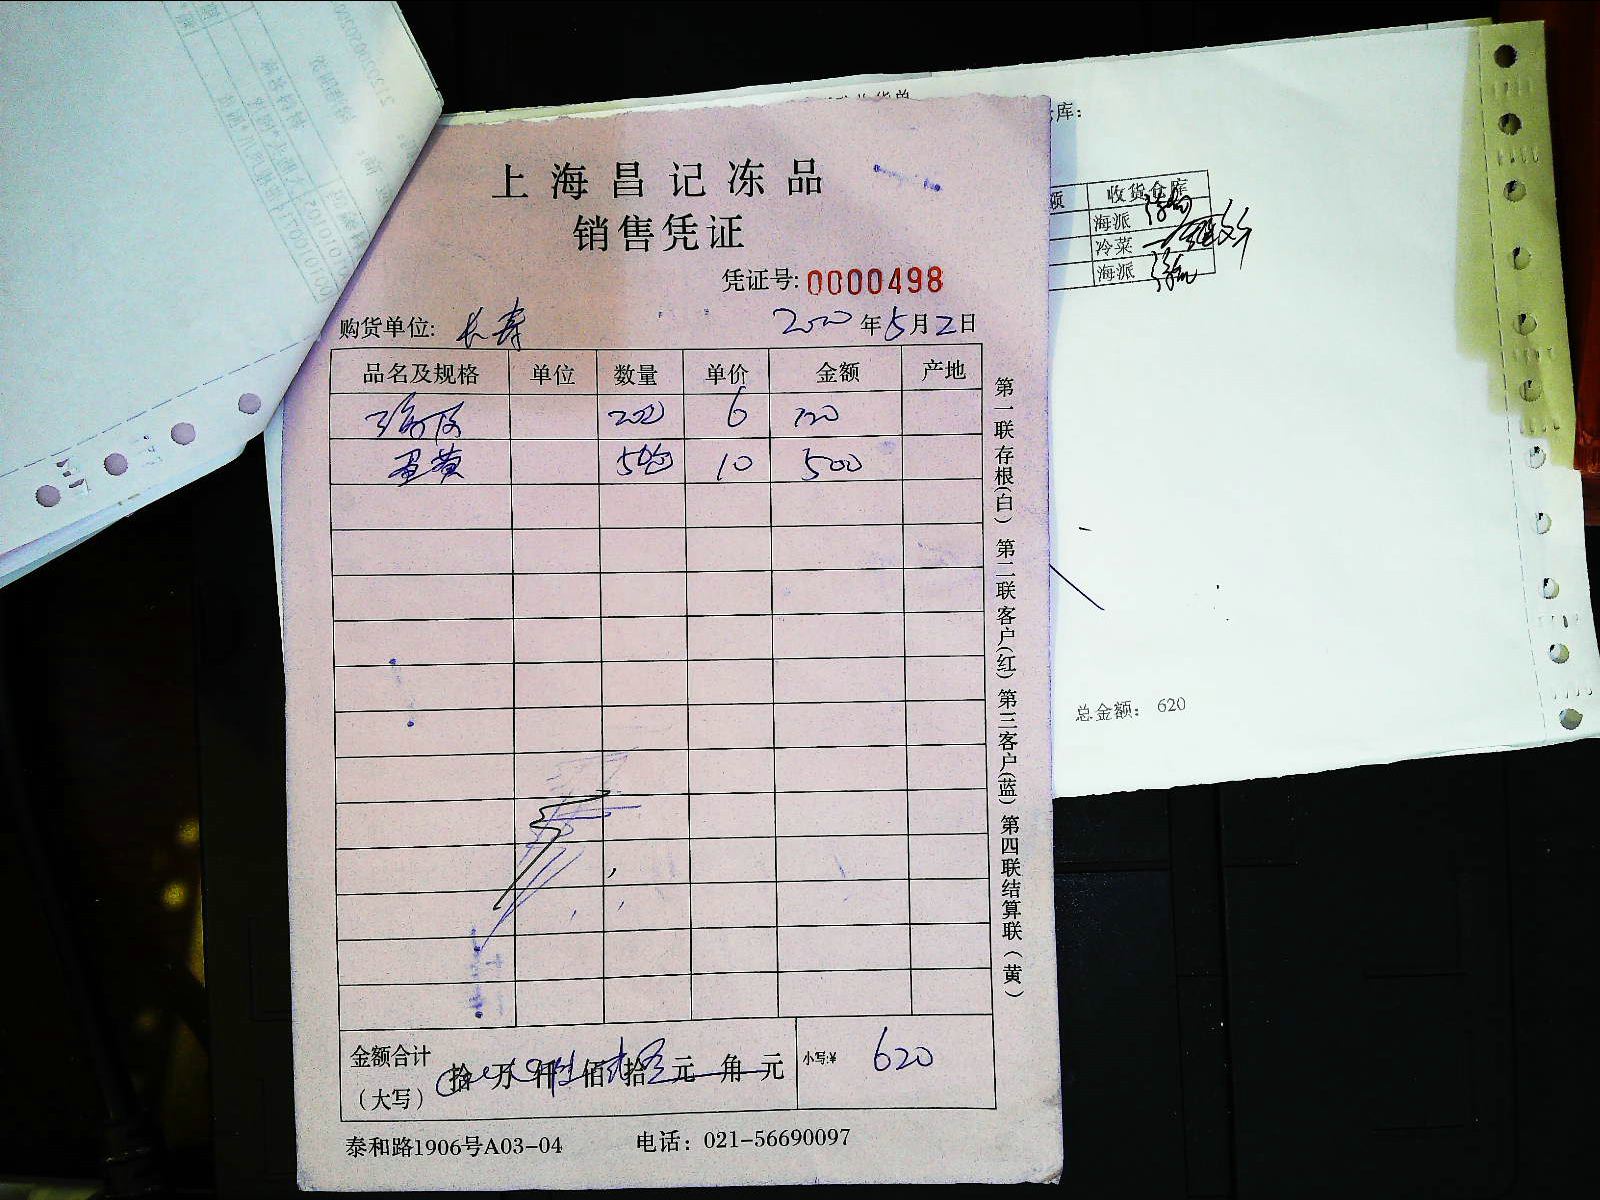 上海昌记冻品
销售凭证
凭证号: 0000498
购货单位: 长寿 2020年5月2日
品名及规格 单位 数量 单价 金额 产地
6 120
蛋黄 50包 10 500
第一联存根(白) 第二联客户(红) 第三客户(蓝) 第四联结算联(黄)
金额合计
(大写) 拾 万 仟 佰 拾 元 角 元 小写:¥ 620
泰和路1906号A03-04 电话: 021-56690097
库:
额 收货仓库
海派
冷菜
海派
总金额: 620